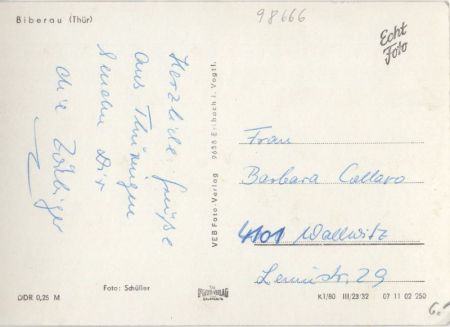 Biberau (Thür)
98666
Echt
Foto
Herzliche Grüße
aus Thüringen
senden Dir
die Zörbiger
VEB Foto-Verlag 9658 Erlbach i. Vogtl.
Frau
Barbara Collaro
4101 Wallwitz
Leninstr. 29
Foto: Schüller
DDR 0,25 M
K1/80 III/23/32 07 11 02 250